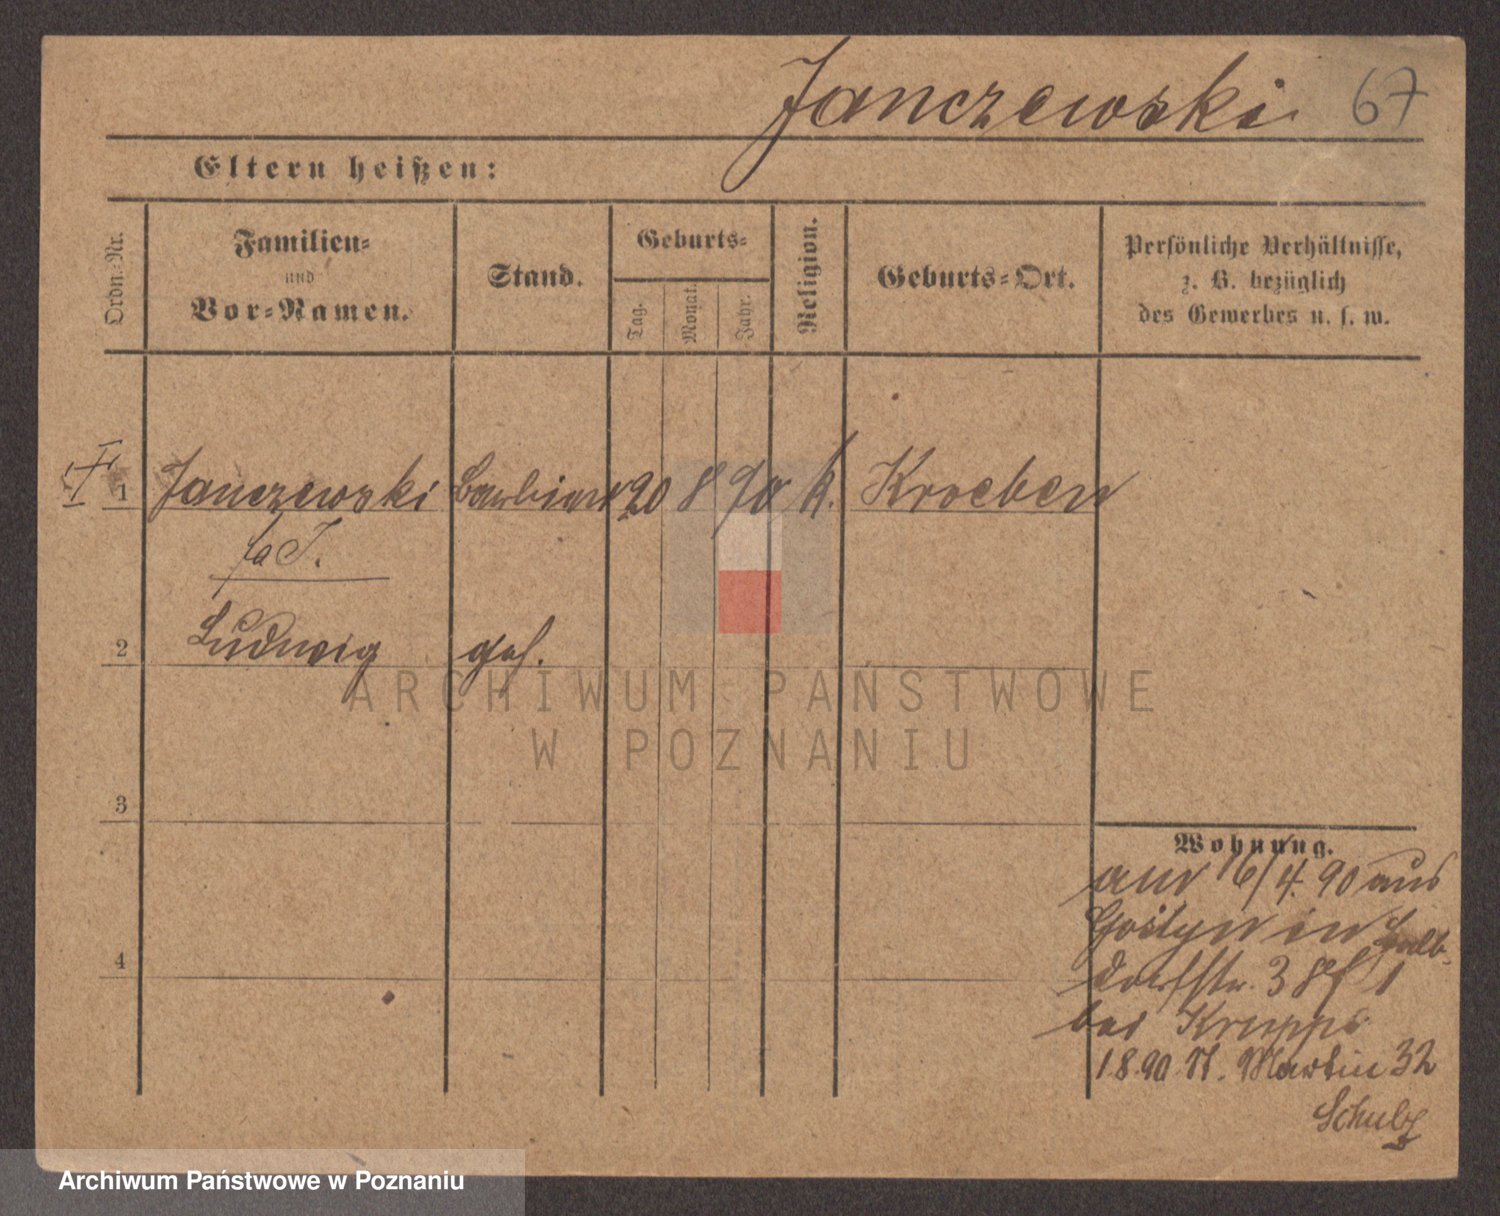 Janczewski 67
Eltern heißen:
Ordn=Nr.
Familien=
und
Vor=Namen.
Stand.
Geburts=
Tag.
Monat.
Jahr.
Religion.
Geburts=Ort.
Persönliche Verhältnisse,
z. B. bezüglich
des Gewerbes u. s. w.
1 Janczewski Barbier 20 8 90 k. Kroeben
2 Ludwig geh.
3
Wohnung.
16/4. 90 aus
Gostyn in Halb-
4
dorfstr. 38 1
bei Kruppe
1.8.90. St. Martin 32
Schulz
ARCHIWUM PAŃSTWOWE
W POZNANIU
Archiwum Państwowe w Poznaniu